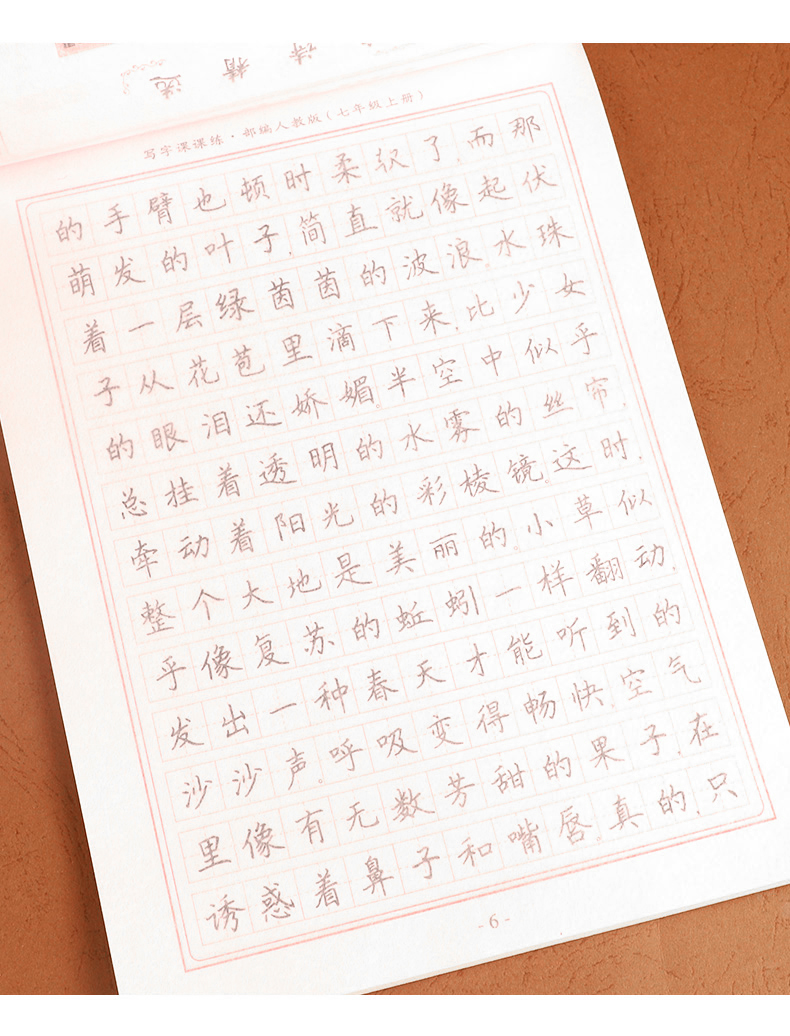 诗精选
写字课课练·部编人教版(七年级上册)
的手臂也顿时柔软了,而那
萌发的叶子,简直就像起伏
着一层绿茵茵的波浪。水珠
子从花苞里滴下来,比少女
的眼泪还娇媚。半空中似乎
总挂着透明的水雾的丝帘,
牵动着阳光的彩棱镜。这时,
整个大地是美丽的。小草似
乎像复苏的蚯蚓一样翻动,
发出一种春天才能听到的
沙沙声。呼吸变得畅快,空气
里像有无数芳甜的果子,在
诱惑着鼻子和嘴唇。真的,只
-6-